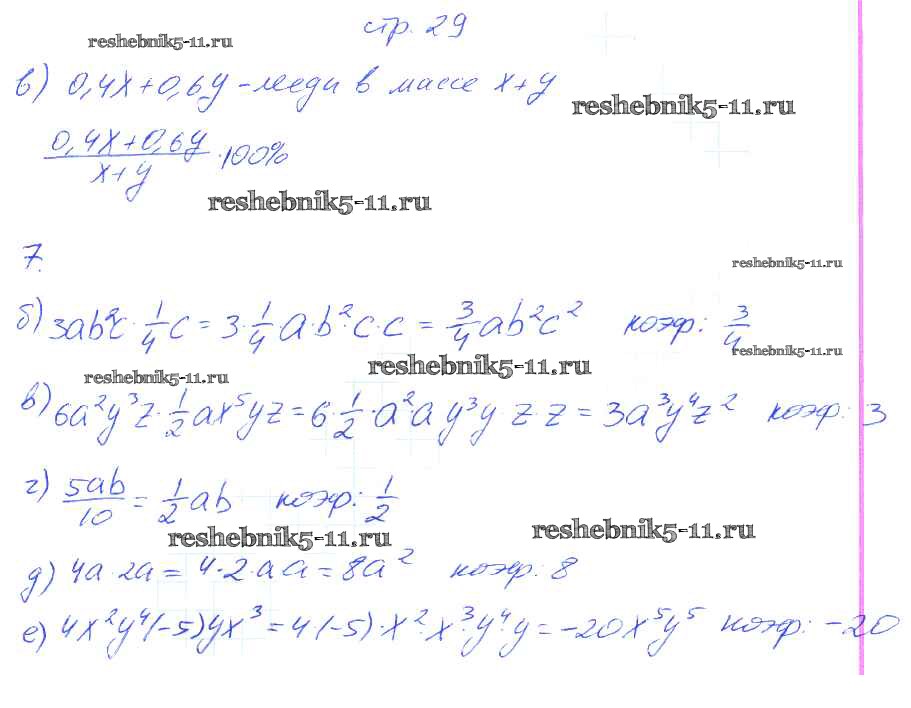 стр. 29
reshebnik5-11.ru
в) 0,4x+0,6y - меди в массе x+y
reshebnik5-11.ru
(0,4x+0,6y)/(x+y) ·100%
reshebnik5-11.ru
7.
reshebnik5-11.ru
б) 3ab²c · 1/4 c = 3 · 1/4 a · b² · c · c = 3/4 ab²c² коэф: 3/4
reshebnik5-11.ru
reshebnik5-11.ru
reshebnik5-11.ru
в) 6a²y³z · 1/2 ax⁵yz = 6 · 1/2 · a²a y³y z·z = 3a³y⁴z² коэф: 3
г) 5ab/10 = 1/2 ab коэф: 1/2
reshebnik5-11.ru
reshebnik5-11.ru
д) 4a·2a = 4·2·a a = 8a² коэф: 8
е) 4x²y⁴(-5)yx³ = 4(-5)·x²·x³·y⁴·y = -20x⁵y⁵ коэф: -20